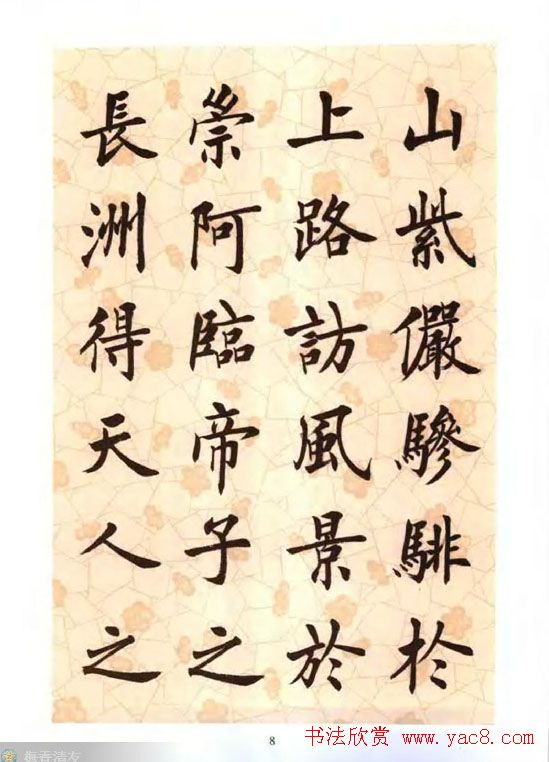 山紫儼驂騑於
上路訪風景於
崇阿臨帝子之
長洲得天人之
8
书法欣赏 www.yac8.com
梅香清友